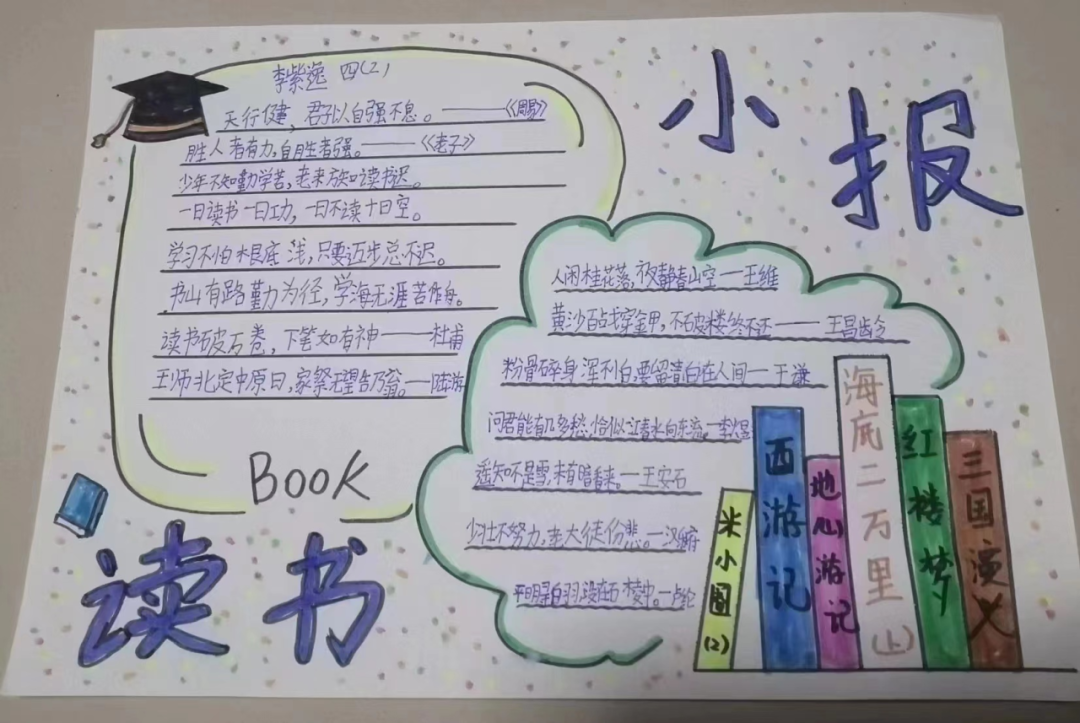 小报
李紫逸 四(2)
天行健，君子以自强不息。——《周易》
胜人者有力，自胜者强。——《老子》
少年不知勤学苦，老来方知读书迟。
一日读书一日功，一日不读十日空。
学习不怕根底浅，只要迈步总不迟。
书山有路勤为径，学海无涯苦作舟。
读书破万卷，下笔如有神——杜甫
王师北定中原日，家祭无望告乃翁。——陆游
BOOK
读书
人闲桂花落，夜静春山空——王维
黄沙百战穿金甲，不破楼终不还——王昌龄
粉骨碎身浑不怕，要留清白在人间——于谦
问君能有几多愁，恰似江春水向东流。——李煜
遥知不是雪，未有暗香来。——王安石
少壮不努力，老大徒伤悲。——汉乐府
平明寻白羽，没在石棱中。——卢纶
米小圈(2)
西游记
地心游记
海底二万里(上)
红楼梦
三国演义